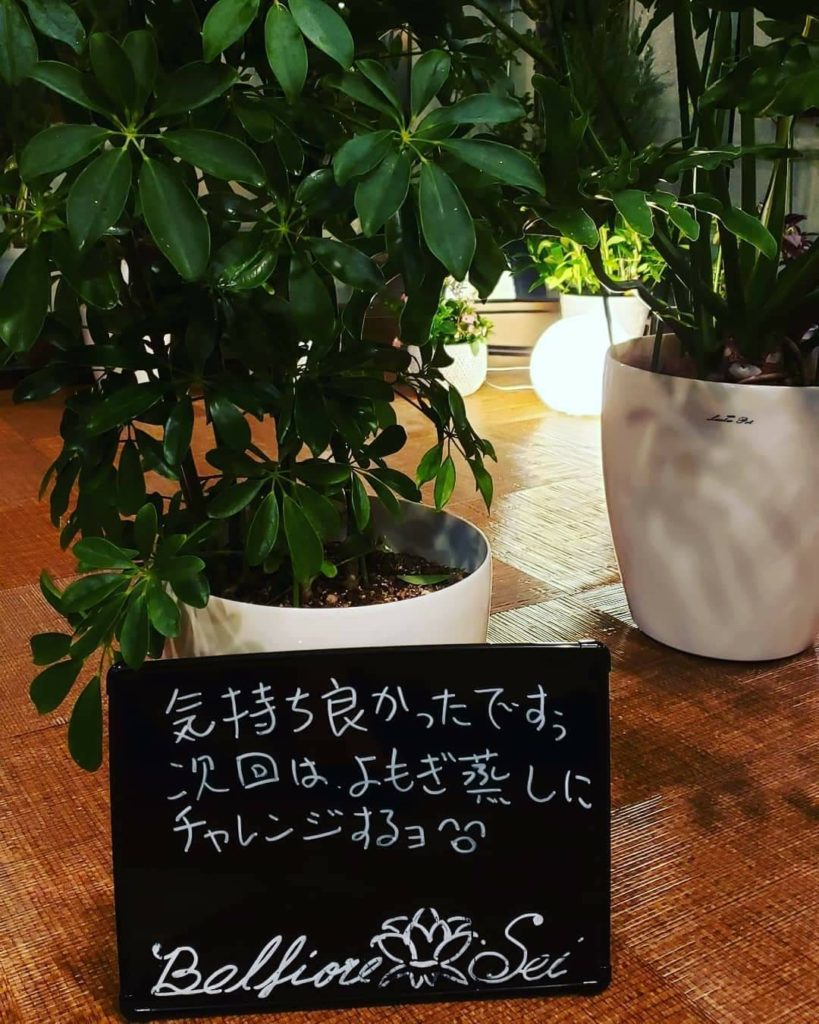 気持ち良かったですぅ
次回は、よもぎ蒸しに
チャレンジするヨ^^
Belfiore Sei